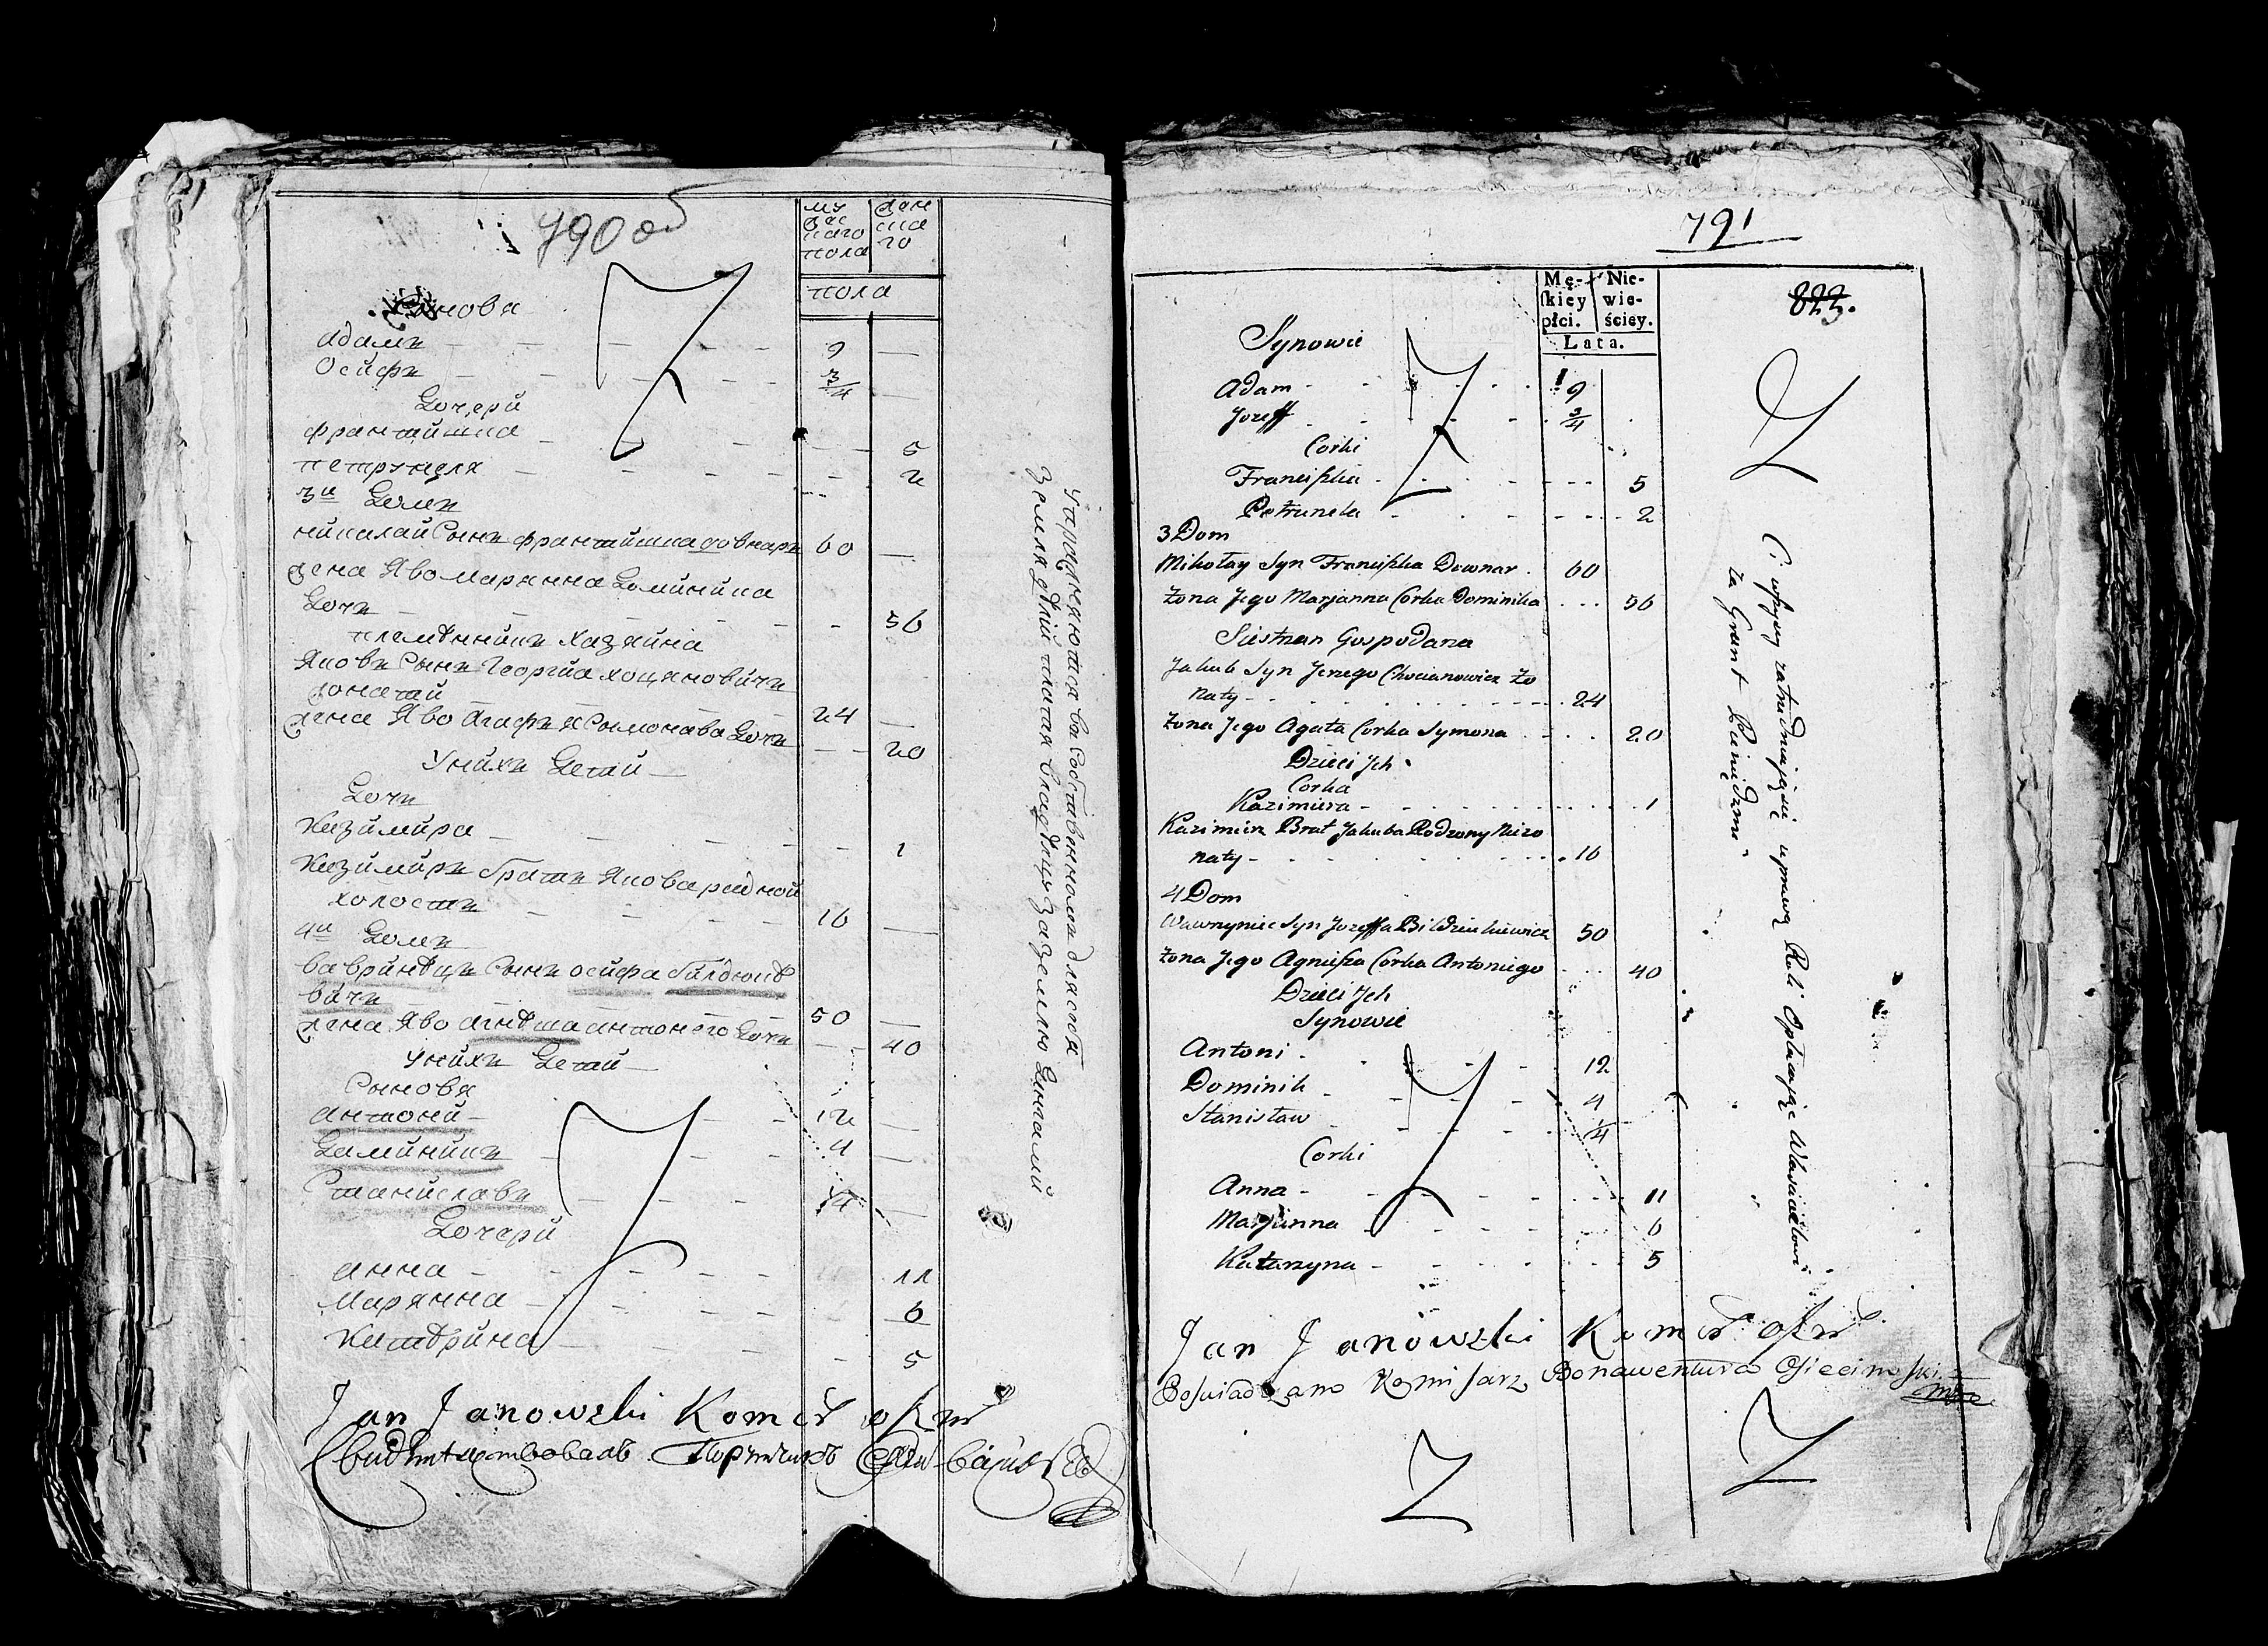 790 об
му
жес
каго
пола
жен
ска
го
пола
Сыновя
Адамъ 9
Осифъ 3/4
Дочери
Франтишка 5
Петрунеля 2
3й Домъ
Никалай Сынъ Франтишка Довнаръ 60
Жена Яво Марянна Доминика
Дочъ 56
Племѣнникъ Хазяина
Яковъ Сынъ Георгиа Хоцяновичъ
Жонатай 24
Жена Яво Агафья Сымонава Дочъ 20
У нихъ Детай
Дочъ
Казимира 1
Казимиръ братъ Якова радной
холостъ 16
4й Домъ
Вавринѣцъ Сынъ Осифа Билдюкѣ
вичъ 50
Жена Яво Агнѣша Антонего Дочъ 40
У нихъ Детай
Сыновя
Антони 12
Даминикъ 4
Станиславъ 1/4
Дочери
Анна 11
Марянна 6
Катѣрина 5
Упражняются въ Собтвенномъ для себя
Земляделии платят владѣльцу за землю Дингами
Jan Janowzki Kom
Свидѣтелствовалъ Порутчикъ
791
823.
Mę-
skiey
płci.
Nie-
wie-
ściey.
Lata.
Synowie
Adam 9
Jozeff 3/4
Corki
Franciszka 5
Petrunela 2
3 Dom
Mikołay Syn Franciszka Downar 60
Żona Jego Marjanna Corka Dominika 56
Siestrzan Gospodarza
Jakub Syn Jerzego Chocianowicz Żo
naty 24
Żona Jego Agata Corka Symona 20
Dzieci Ich
Corka
Kazimiera 1
Kazimierz Brat Jakuba Rodzony Nieżo
naty 16
4 Dom
Wawrzyniec Syn Jozeffa Bildziukiewicz 50
Żona Jego Agniszka Corka Antoniego 40
Dzieci Ich
Synowie
Antoni 12
Dominik 4
Stanisław 1/4
Corki
Anna 11
Marjanna 6
Katarzyna 5
Ci wszyscy zatrudniaią się uprawą Roli Opłacaiąc Własciciełowi
za Grunt Pieniędzmi
Jan Janowzki Kom
Poswiadczano Komisarz Bonawentura